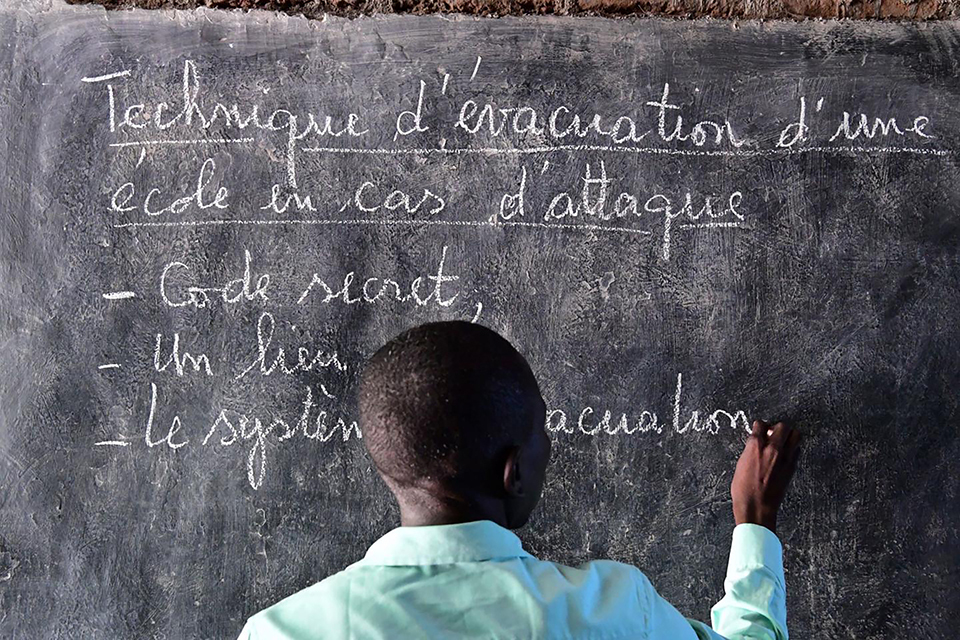 Technique d'évacuation d'une
école en cas d'attaque
- Code secret,
- Un lieu
- le acuation